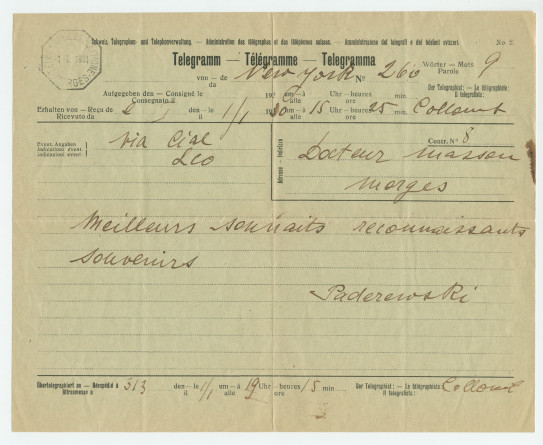 Schweiz. Telegraphen- und Telephonverwaltung. — Administration des télégraphes et des téléphones suisses. — Amministrazione dei telegrafi e dei telefoni svizzeri. No
Telegramm — Télégramme — Telegramma
von — de New York No 260 Wörter — Mots 9
da Parole
Aufgegeben den — Consigné le 192 um — à Uhr — heures min. Der Telegraphist: — Le télégraphiste:
Consegnato il alle ore Il telegrafista:
Erhalten von — Reçu de den — le 1/1 30 15 Uhr — heures 25 min.
Ricevuto da il alle ore
Event. Angaben via Cial Centr. No 8
Adresse — Indirizzo
Docteur Masson
Morges
Meilleurs souhaits reconnaissants
souvenirs
Paderewski
Übertelegraphiert an — Réexpédié à 313 den — le 1/1 um — à 19 Uhr — heures 15 min. Der Telegraphist: — Le télégraphiste:
Ritrasmesso a il alle ore Il telegrafista: